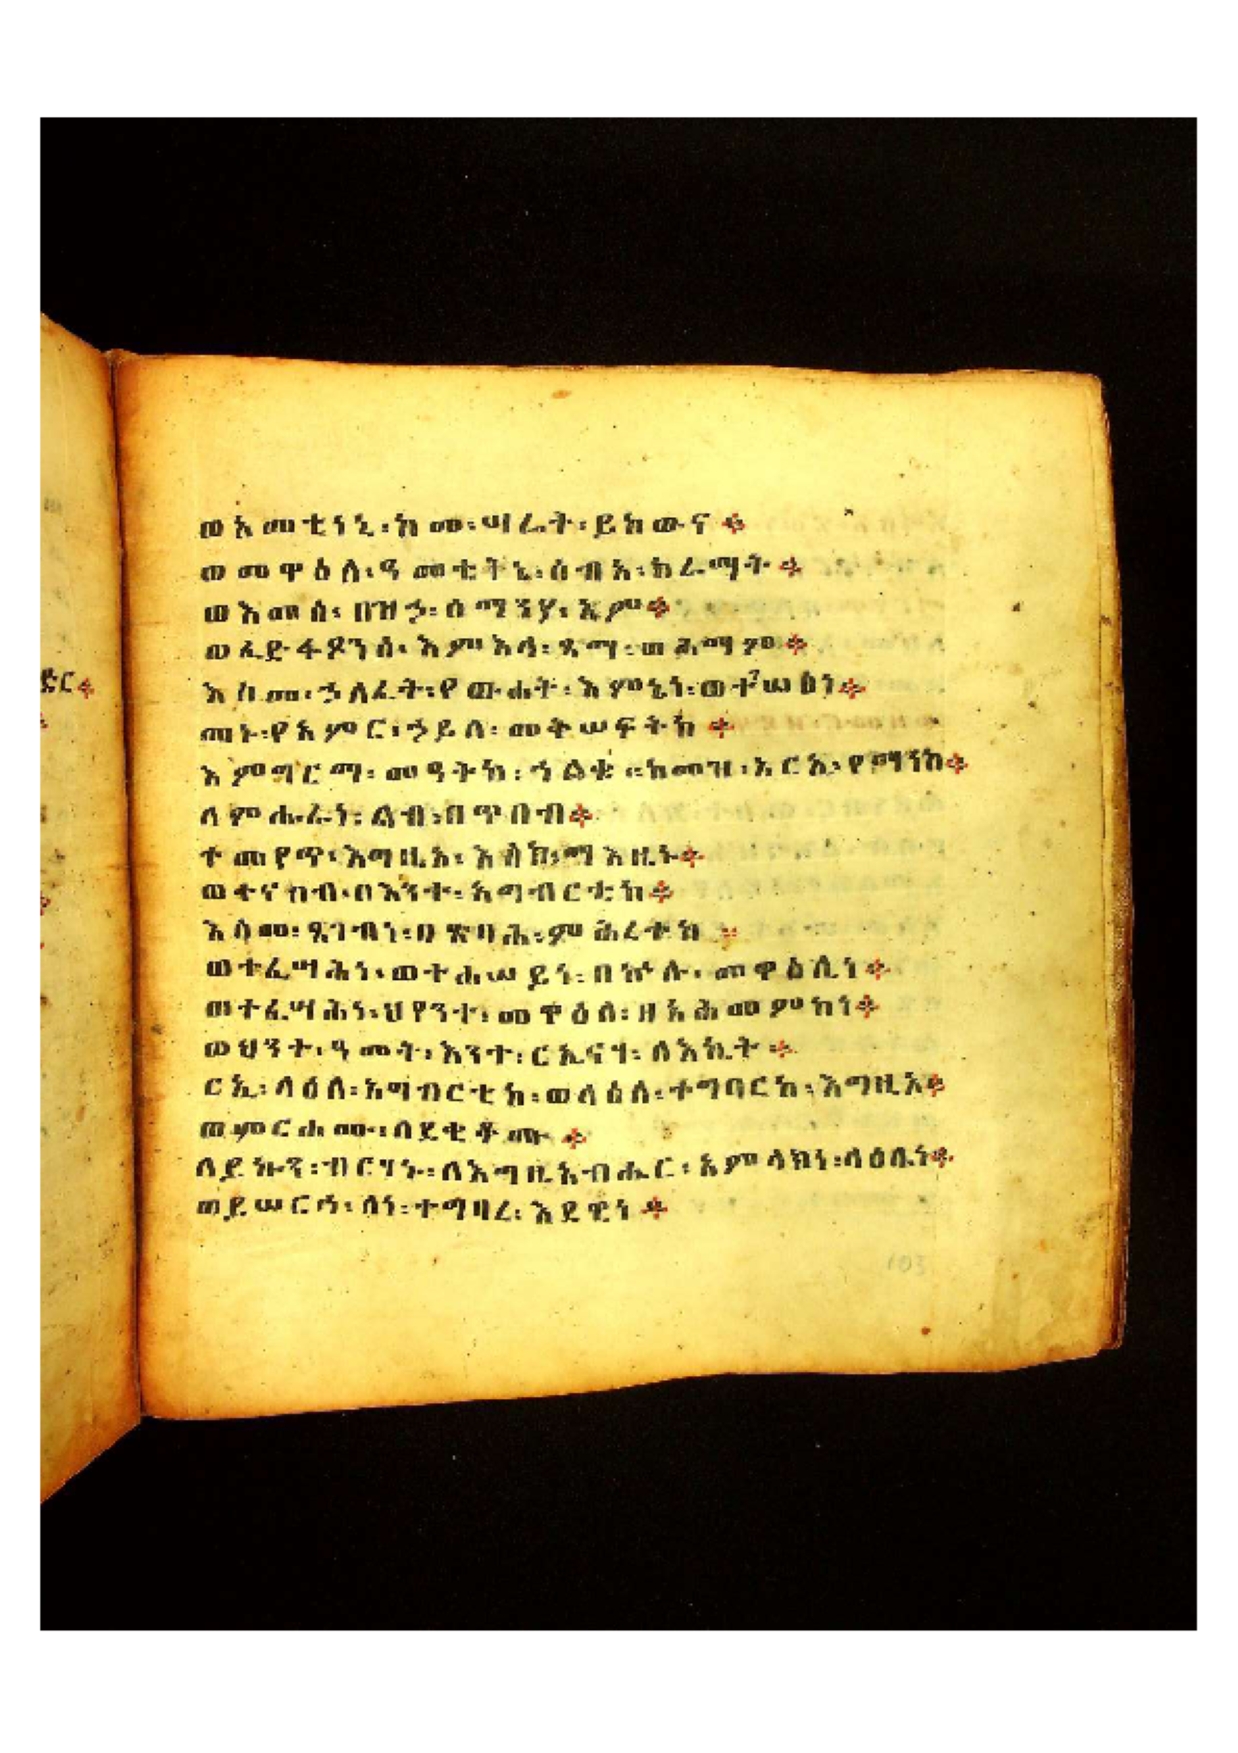 ወአመቲነኒ፡ከመ፡ሣሬት፡ይከውና፨
ወመዋዕለ፡ዓመቲትኒ፡ሰብአ፡ክራማት፨
ወእመሰ፡በዝኃ፡ሰማንያ፡ኧም፨
ወፈድፋዶንሰ፡እምእላ፡ጻማ፡ወሕማም፨
እስመ፡ኃለፈት፡የውሐት፡እምኔነ፡ወተገሠፅነ፨
መኑ፡የአምር፡ኃይለ፡መቅሠፍትከ፨
እምግርማ፡መዓትከ፡ኀልቁ፡ከመዝ፡አርአ፡የማንከ፨
ለምሑራነ፡ልብ፡በጥበብ፨
ተመየጥ፡እግዚአ፡እስከ፡ማእዜኑ፨
ወተናከብ፡በእንተ፡አግብርቲከ፨
እስመ፡ጸገብነ፡በጽባሕ፡ምሕረተከ፨
ወተፈሣሕነ፡ወተሐሠይነ፡በኵሉ፡መዋዕሊነ፨
ወተፈሣሕነ፡ህየንተ፡መዋዕለ፡ዘአሕመምከነ፨
ወህንተ፡ዓመት፡እንተ፡ርኢናሃ፡ለእኪት፨
ርኢ፡ላዕለ፡አግብርቲከ፡ወላዕለ፡ተግባርከ፡እግዚአ፨
ወምርሐሙ፡ለደቂቆሙ፨
ለይኩን፡ብርሃኑ፡ለእግዚአብሔር፡አምላክነ፡ላዕሌነ፨
ወይሠርኅ፡ለነ፡ተግባረ፡እደዊነ፨